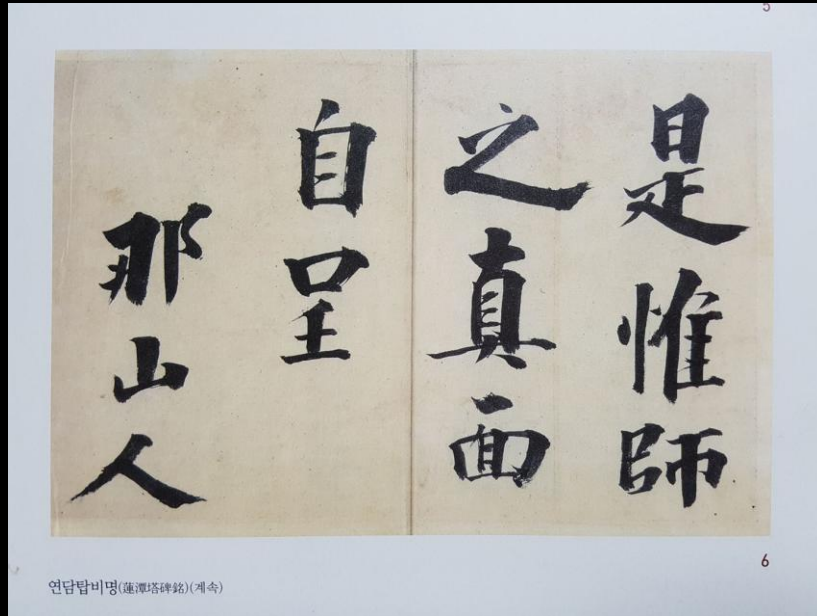 5
是惟師
之真面
自呈
那山人
6
연담탑비명(蓮潭塔碑銘)(계속)